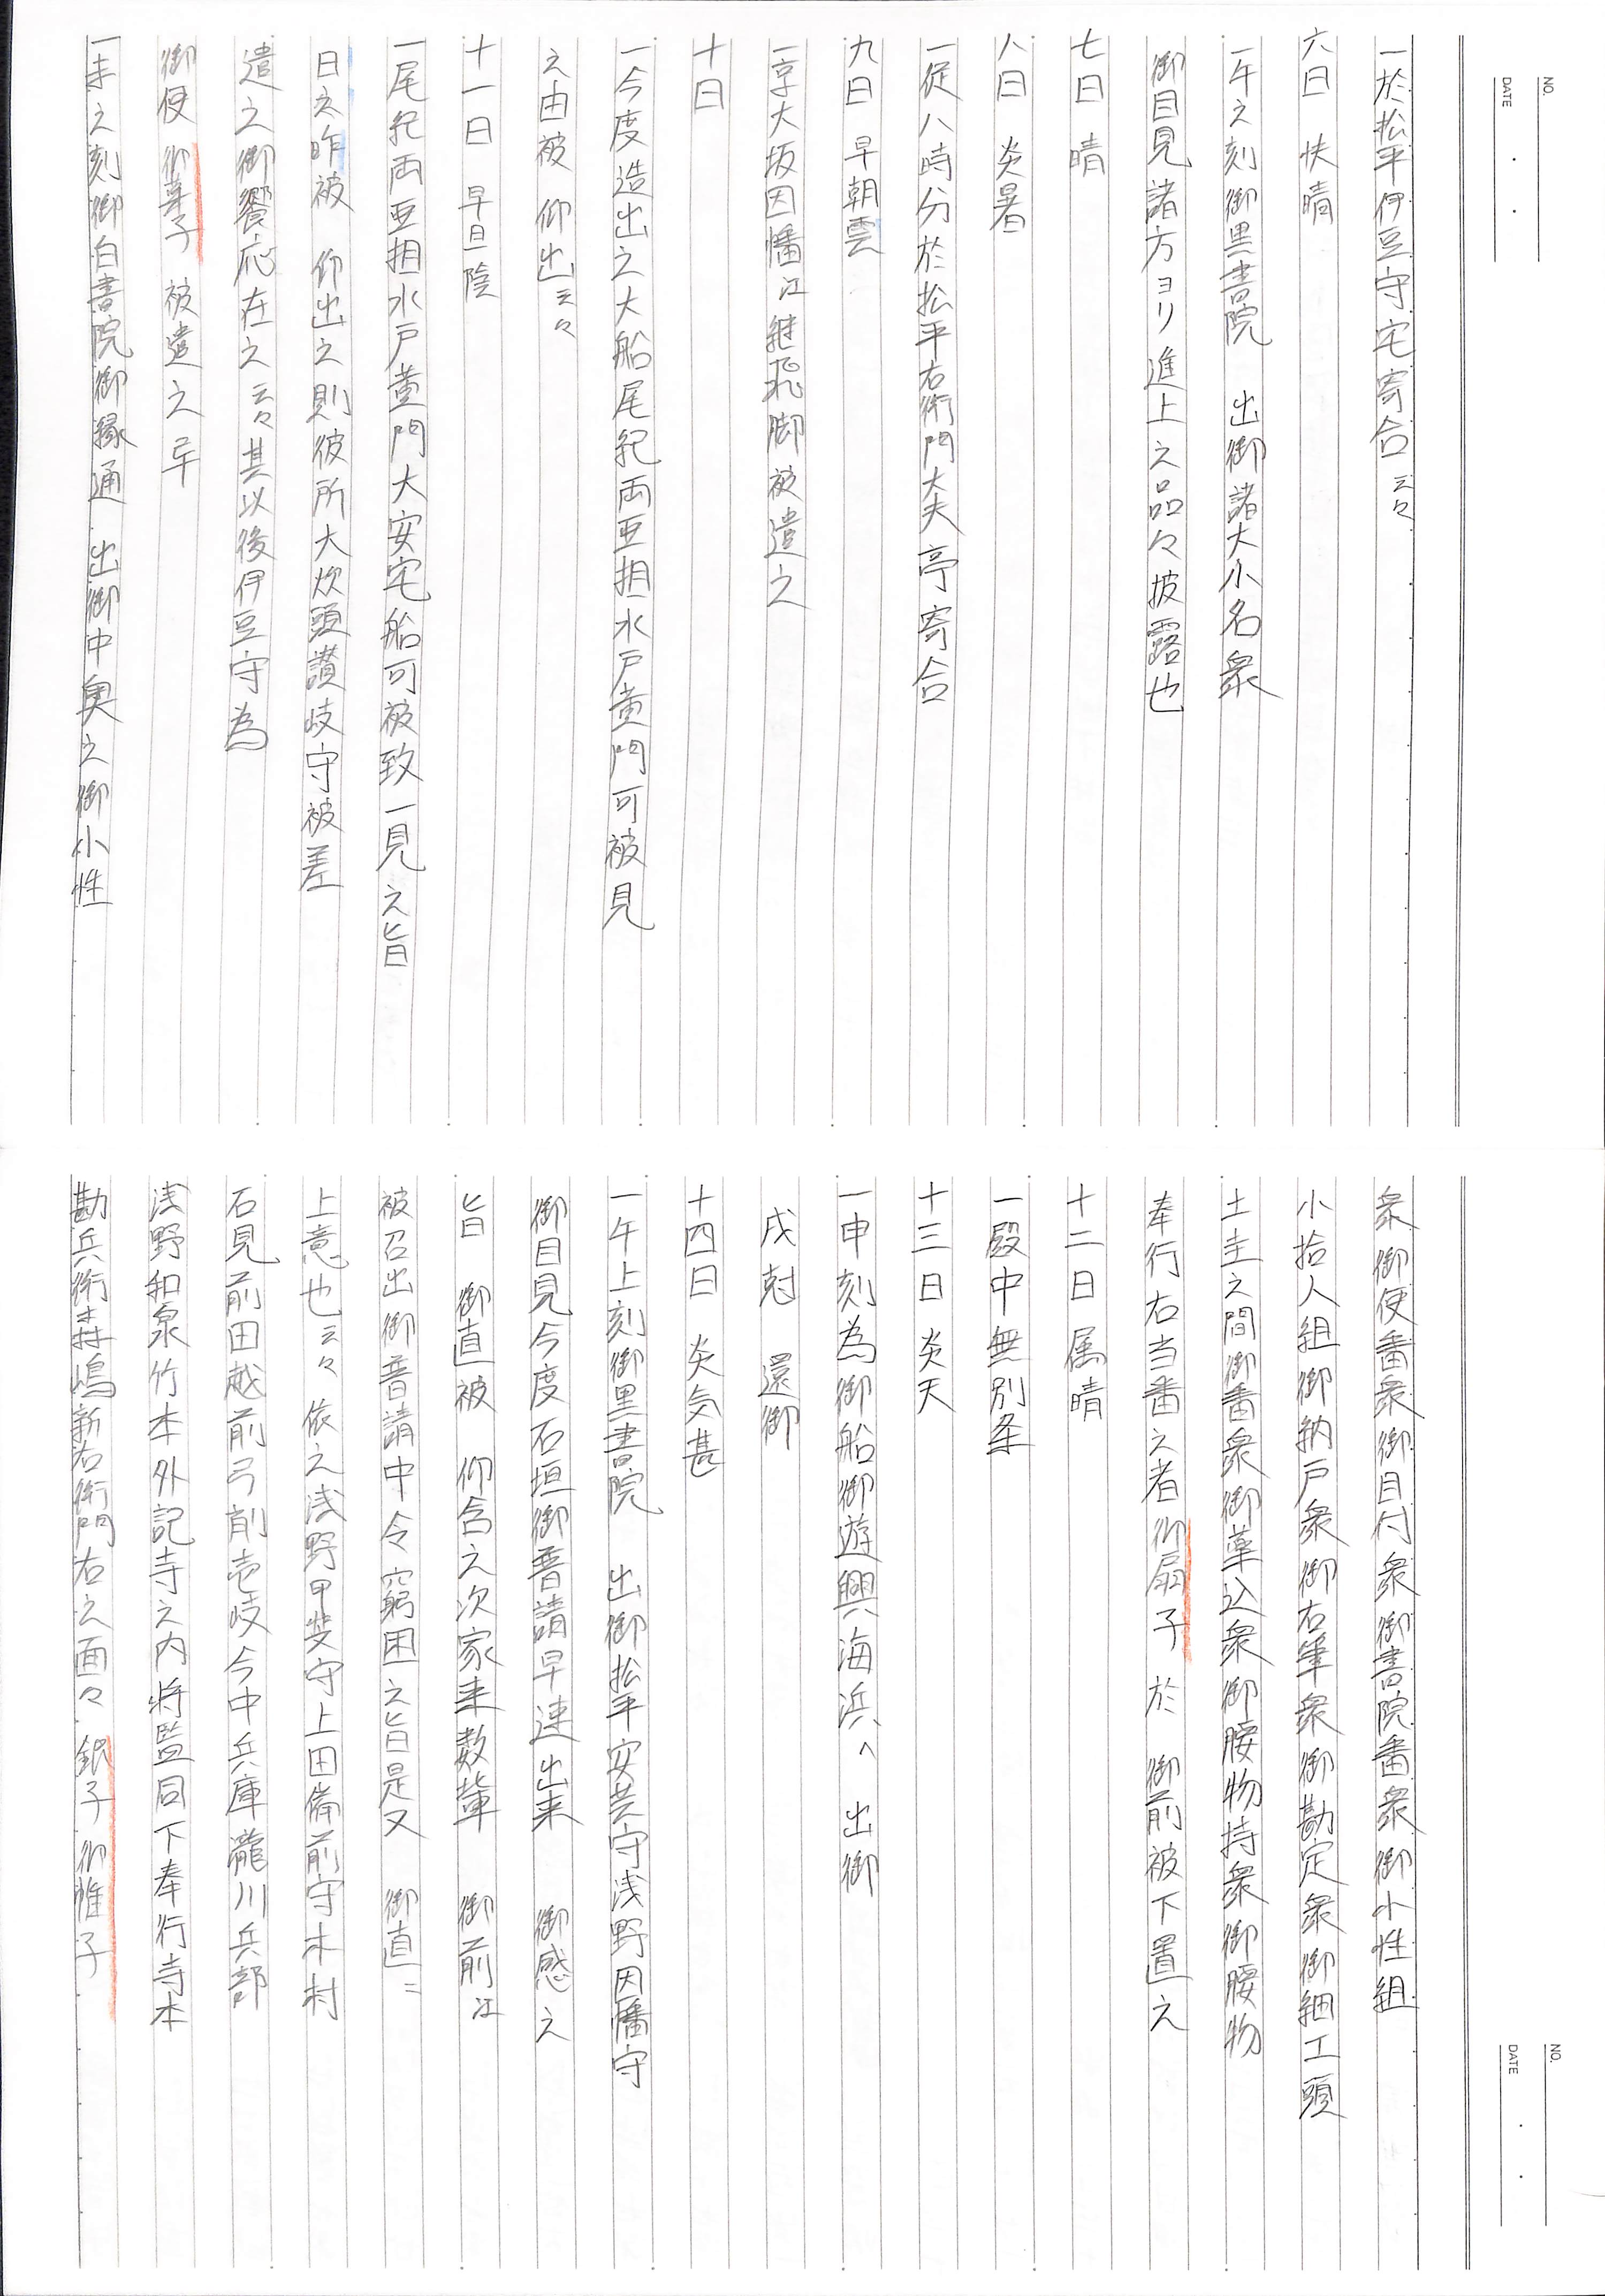 NO.
DATE
一於松平伊豆守宅寄合云々
六日 快晴
一午之刻御黒書院 出御諸大小名衆
御目見諸方ヨリ進上之品々披露也
七日 晴
八日 炎暑
一従八時分於松平右衛門大夫亭寄合
九日 早朝雲
一享大坂因幡江継飛脚被遣之
十日
一今度造出之大船尾紀両亜相水戸黄門可被見
之由被 仰出云々
十一日 早旦陰
一尾紀両亜相水戸黄門大安宅船可被致一見之旨
日之昨被 仰出之則彼所大炊頭讃岐守被差
遣之御饗応在之云々其以後伊豆守為
御使御菓子被遣之年
一未之刻御白書院御縁通 出御中奥之御小性
NO.
DATE
衆御使番衆御目付衆御書院番衆御小性組
小拾人組御納戸衆御右筆衆御勘定衆御細工頭
土圭之間御番衆御薬込衆御腰物持衆御腰物
奉行右当番之者御扇子於 御前被下置之
十二日 属晴
一殿中無別条
十三日 炎天
一申刻為御船御遊興海浜へ 出御
戌尅 還御
十四日 炎気甚
一午上刻御黒書院 出御松平安芸守浅野因幡守
御目見今度石垣御普請早速出来 御感之
旨 御直被 仰含之次家来数輩 御前江
被召出御普請中令窮困之旨是又 御直ニ
上意也云々依之浅野甲斐守上田備前守木村
石見前田越前弓削壱岐今中兵庫瀧川兵部
浅野和泉竹本外記寺之内将監同下奉行寺本
勘兵衛森嶋新右衛門右之面々銀子御帷子